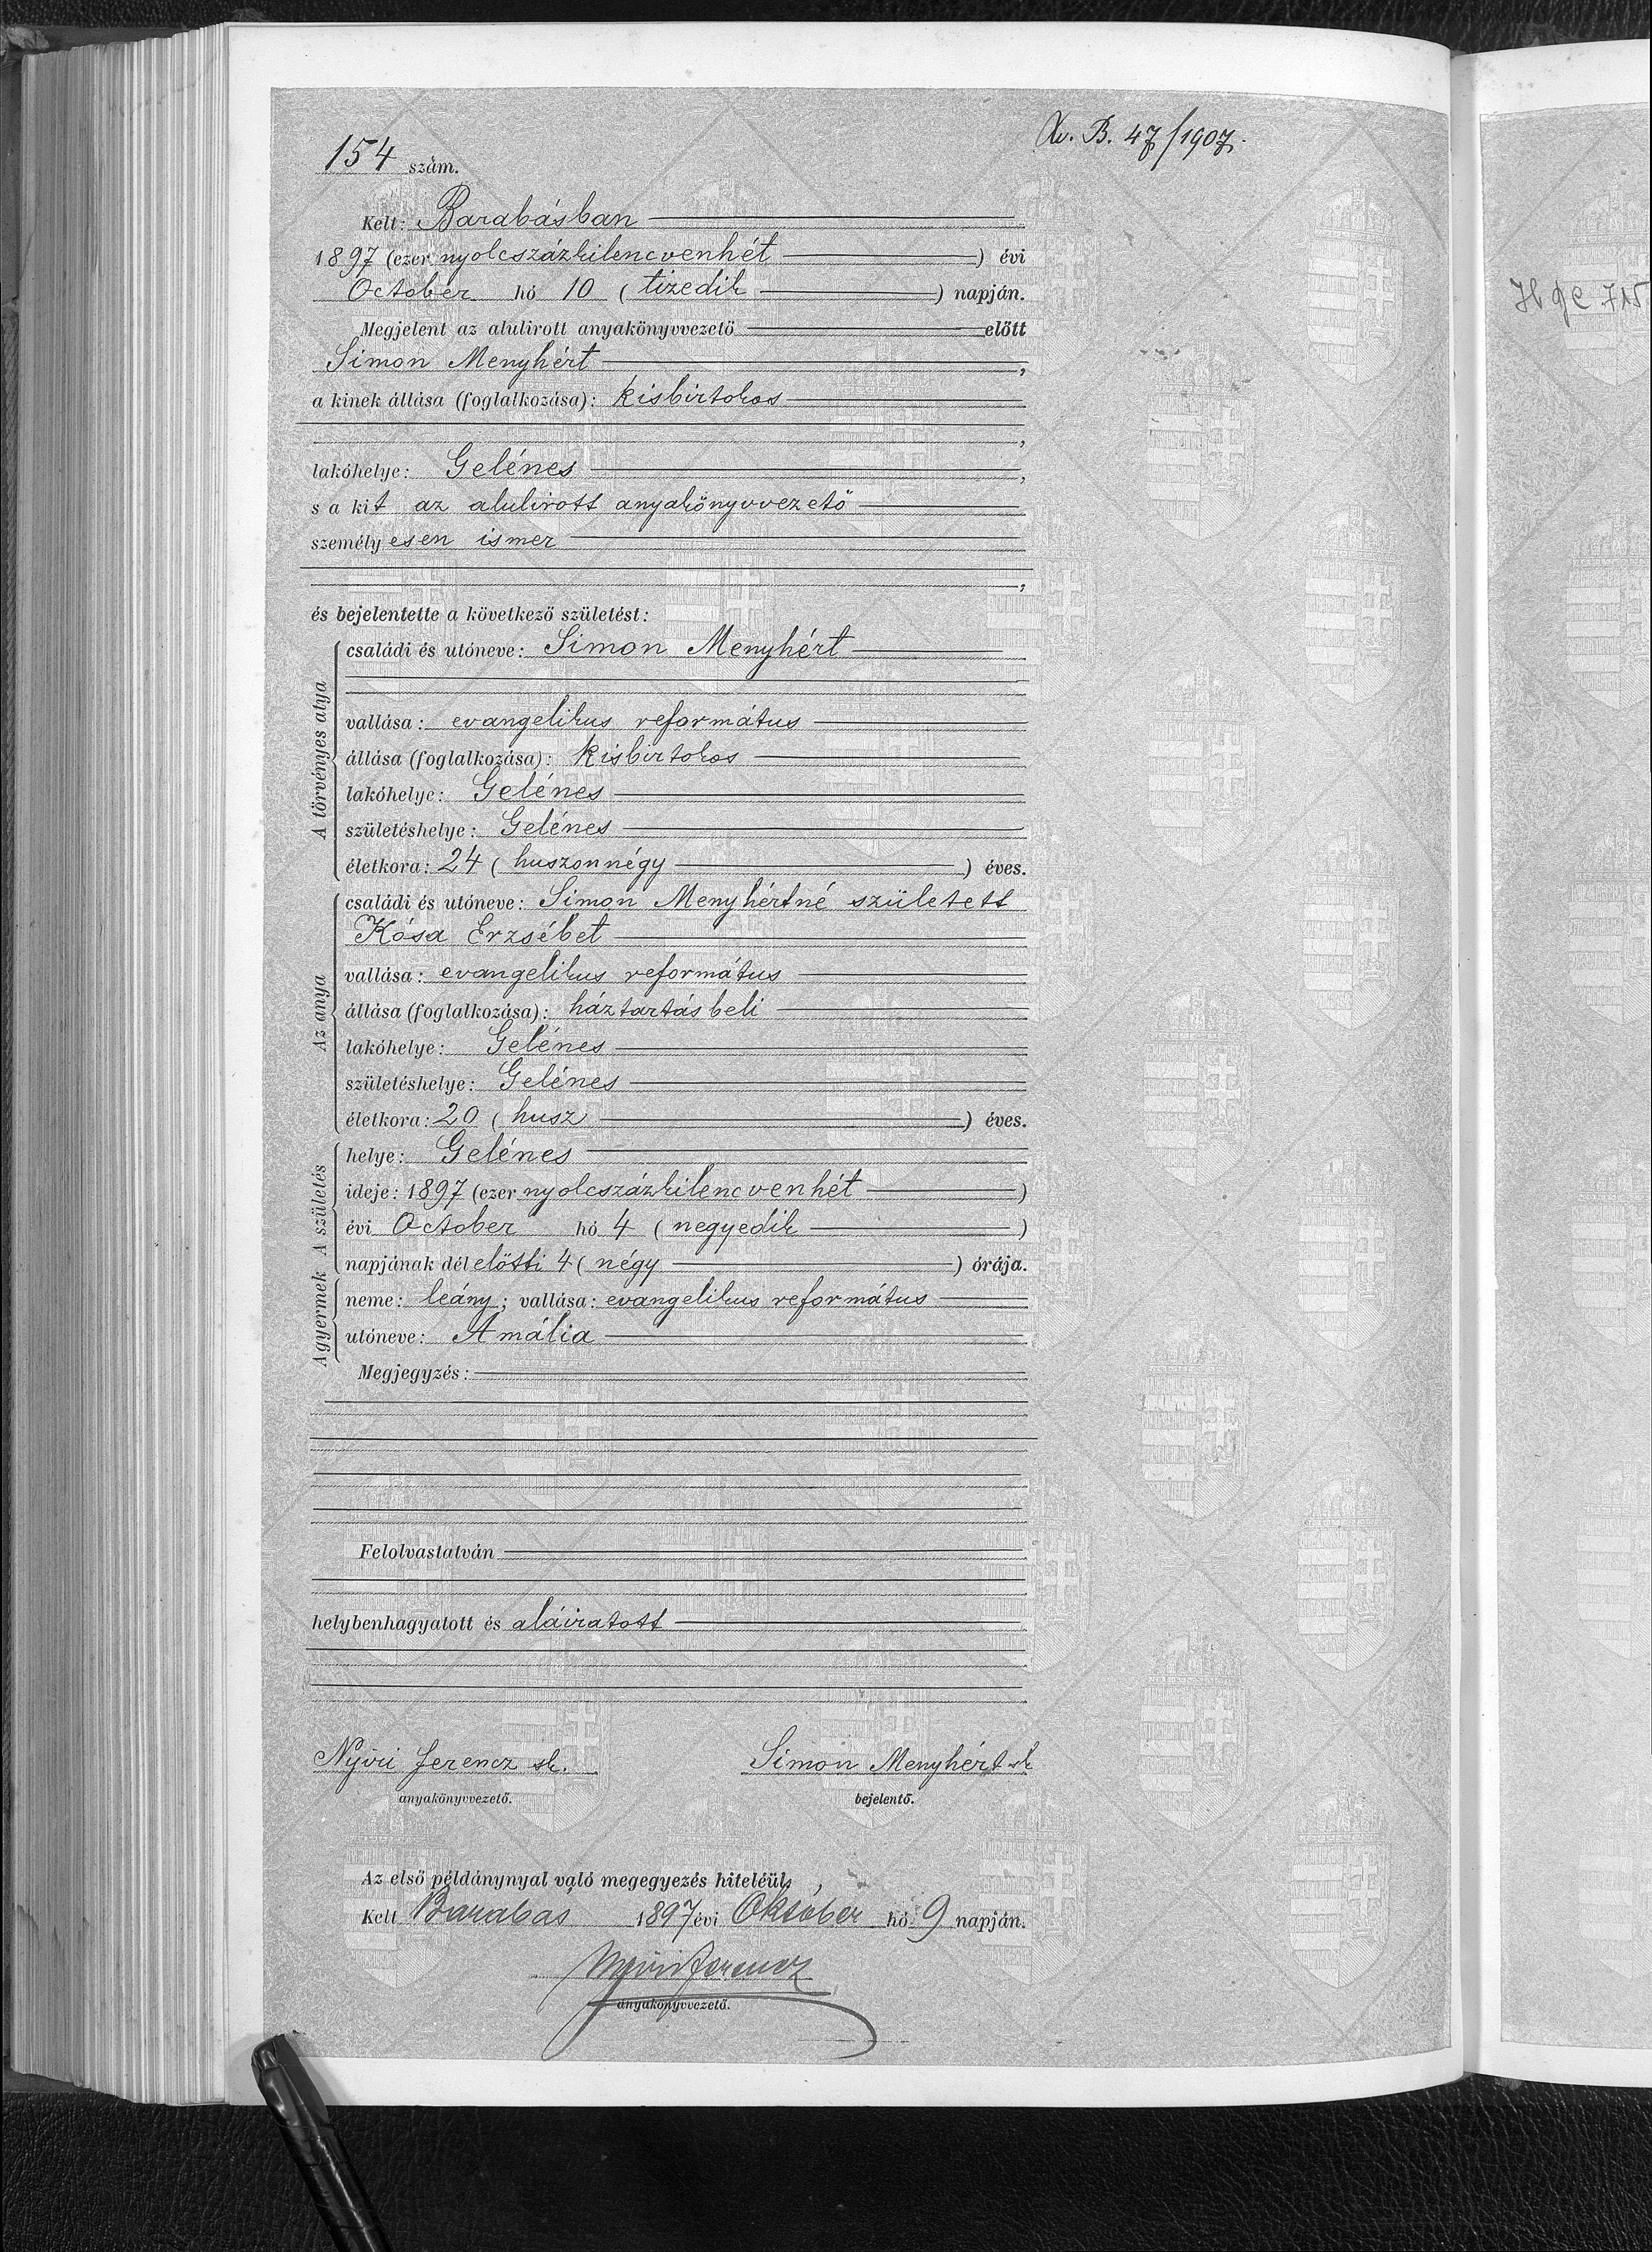 B. 47/1907.
154 szám.
Kelt: Barabásban
1897 (ezer nyolcszázkilencvenhét) évi
October hó 10 (tizedik) napján.
Megjelent az alulirott anyakönyvvezető előtt
Simon Menyhért,
a kinek állása (foglalkozása): kisbirtokos
,
lakóhelye: Gelénes,
s a kit az alulirott anyakönyvvezető
személyesen ismer
,
és bejelentette a következő születést:
A törvényes atya
családi és utóneve: Simon Menyhért
vallása: evangelikus református
állása (foglalkozása): kisbirtokos
lakóhelye: Gelénes
születéshelye: Gelénes
életkora: 24 (huszonnégy) éves.
Az anya
családi és utóneve: Simon Menyhértné született
Kósa Erzsébet
vallása: evangelikus református
állása (foglalkozása): háztartásbeli
lakóhelye: Gelénes
születéshelye: Gelénes
életkora: 20 (husz) éves.
A születés
helye: Gelénes
ideje: 1897 (ezer nyolcszázkilencvenhét)
évi October hó 4 (negyedik)
napjának délelőtti 4 (négy) órája.
A gyermek
neme: leány; vallása: evangelikus református
utóneve: Amália
Megjegyzés:
Felolvastatván
helybenhagyatott és aláiratott
Nyiri Ferencz sk. Simon Menyhért sk
anyakönyvvezető. bejelentő.
Az első példánynyal való megegyezés hiteléül,
Kelt Barabás 1897 évi Október hó 9 napján.
Nyiri Ferencz
anyakönyvvezető.